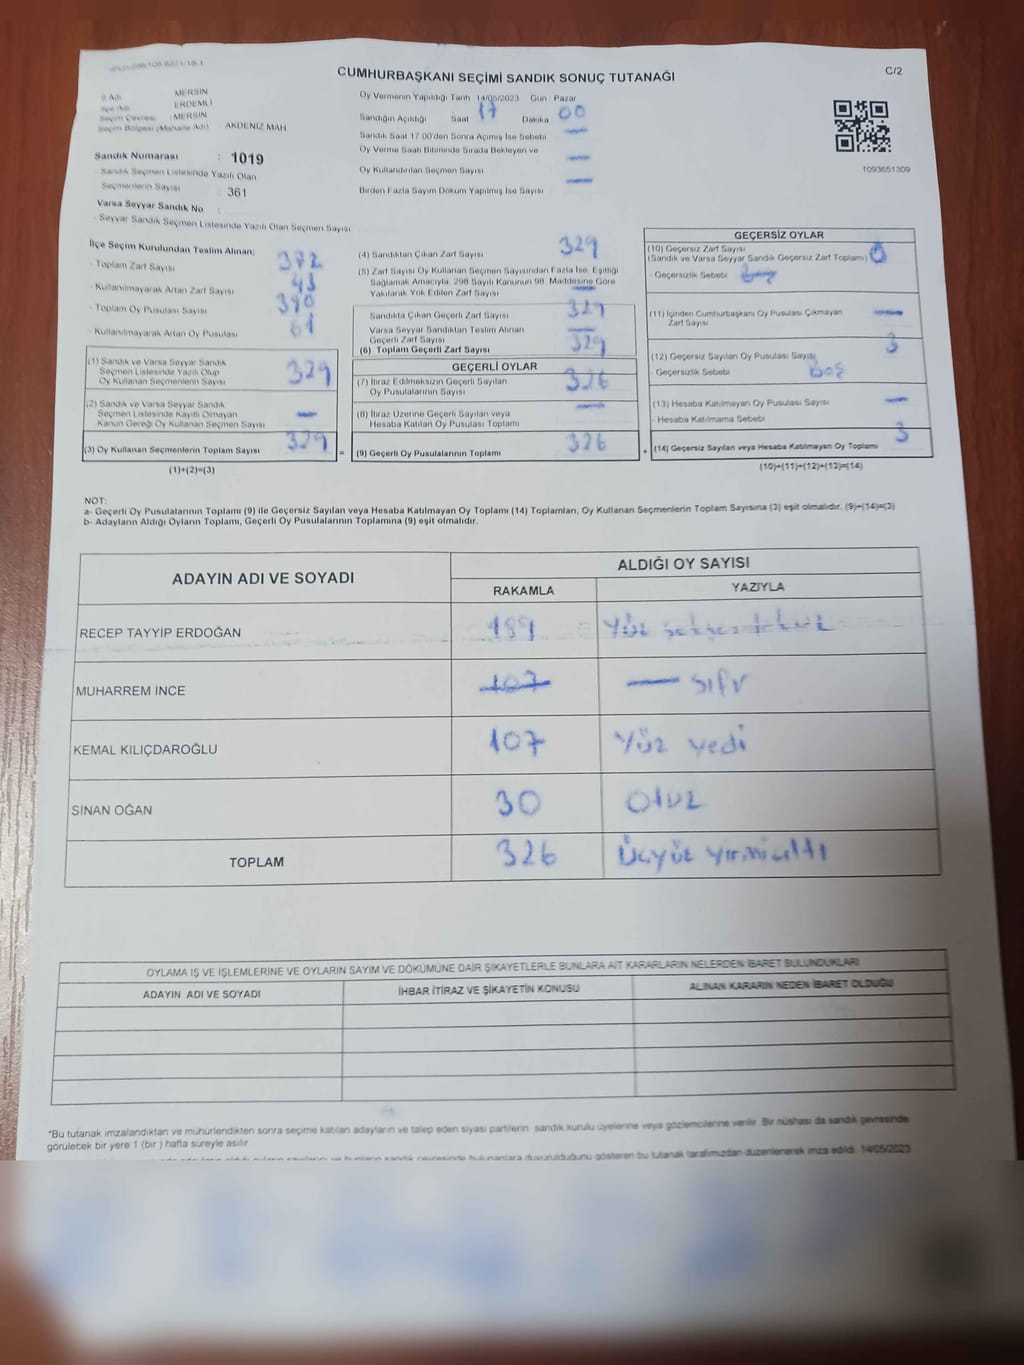 CUMHURBAŞKANI SEÇİMİ SANDIK SONUÇ TUTANAĞI
C/2
İl Adı MERSİN
İlçe Adı ERDEMLİ
Seçim Çevresi : MERSİN
Seçim Bölgesi (Mahalle Adı) AKDENİZ MAH
Sandık Numarası : 1019
- Sandık Seçmen Listesinde Yazılı Olan
Seçmenlerin Sayısı : 361
Varsa Seyyar Sandık No
- Seyyar Sandık Seçmen Listesinde Yazılı Olan Seçmen Sayısı
Oy Vermenin Yapıldığı Tarih 14/05/2023 Gün Pazar
Sandığın Açıldığı Saat 17 Dakika 00
Sandık Saat 17:00'den Sonra Açımış İse Sebebi —
Oy Verme Saati Bitiminde Sırada Bekleyen ve
Oy Kullandırılan Seçmen Sayısı —
Birden Fazla Sayım Döküm Yapılmış İse Sayısı —
1093651309
İlçe Seçim Kurulundan Teslim Alınan:
- Toplam Zarf Sayısı 372
- Kullanılmayarak Artan Zarf Sayısı 43
- Toplam Oy Pusulası Sayısı 390
- Kullanılmayarak Artan Oy Pusulası 61
(1) Sandık ve Varsa Seyyar Sandık
Seçmen Listesinde Yazılı Olup
Oy Kullanan Seçmenlerin Sayısı 329
(2) Sandık ve Varsa Seyyar Sandık
Seçmen Listesinde Kayıtlı Olmayan
Kanun Gereği Oy Kullanan Seçmen Sayısı —
(3) Oy Kullanan Seçmenlerin Toplam Sayısı 329
(1)+(2)=(3)
(4) Sandıktan Çıkan Zarf Sayısı 329
(5) Zarf Sayısı Oy Kullanan Seçmen Sayısından Fazla İse, Eşitliği
Sağlamak Amacıyla, 298 Sayılı Kanunun 98. Maddesine Göre
Yakılarak Yok Edilen Zarf Sayısı —
Sandıkta Çıkan Geçerli Zarf Sayısı 329
Varsa Seyyar Sandıktan Teslim Alınan
Geçerli Zarf Sayısı —
(6) Toplam Geçerli Zarf Sayısı 329
GEÇERLİ OYLAR
(7) İtiraz Edilmeksizin Geçerli Sayılan
Oy Pusulalarının Sayısı 326
(8) İtiraz Üzerine Geçerli Sayılan veya
Hesaba Katılan Oy Pusulası Toplamı —
= (9) Geçerli Oy Pusulalarının Toplamı 326
GEÇERSİZ OYLAR
(10) Geçersiz Zarf Sayısı
(Sandık ve Varsa Seyyar Sandık Geçersiz Zarf Toplamı) 0
- Geçersizlik Sebebi
(11) İçinden Cumhurbaşkanı Oy Pusulası Çıkmayan
Zarf Sayısı —
(12) Geçersiz Sayılan Oy Pusulası Sayısı 3
- Geçersizlik Sebebi Boş
(13) Hesaba Katılmayan Oy Pusulası Sayısı —
- Hesaba Katılmama Sebebi
+ (14) Geçersiz Sayılan veya Hesaba Katılmayan Oy Toplamı 3
(10)+(11)+(12)+(13)=(14)
NOT:
a- Geçerli Oy Pusulalarının Toplamı (9) ile Geçersiz Sayılan veya Hesaba Katılmayan Oy Toplamı (14) Toplamları, Oy Kullanan Seçmenlerin Toplam Sayısına (3) eşit olmalıdır. (9)+(14)=(3)
b- Adayların Aldığı Oyların Toplamı, Geçerli Oy Pusulalarının Toplamına (9) eşit olmalıdır.
ADAYIN ADI VE SOYADI
ALDIĞI OY SAYISI
RAKAMLA YAZIYLA
RECEP TAYYİP ERDOĞAN 189 Yüz seksen dokuz
MUHARREM İNCE 107 — sıfır
KEMAL KILIÇDAROĞLU 107 Yüz yedi
SİNAN OĞAN 30 Otuz
TOPLAM 326 Üçyüz yirmi altı
OYLAMA İŞ VE İŞLEMLERİNE VE OYLARIN SAYIM VE DÖKÜMÜNE DAİR ŞİKAYETLERLE BUNLARA AİT KARARLARIN NELERDEN İBARET BULUNDUKLARI
ADAYIN ADI VE SOYADI İHBAR İTİRAZ VE ŞİKAYETİN KONUSU ALINAN KARARIN NEDEN İBARET OLDUĞU
*Bu tutanak imzalandıktan ve mühürlendikten sonra seçime katılan adayların ve talep eden siyasi partilerin sandık kurulu üyelerine veya gözlemcilerine verilir. Bir nüshası da sandık çevresinde
görülecek bir yere 1 (bir) hafta süreyle asılır.
gösteren bu tutanak tarafımızdan düzenlenerek imza edildi. 14/05/2023